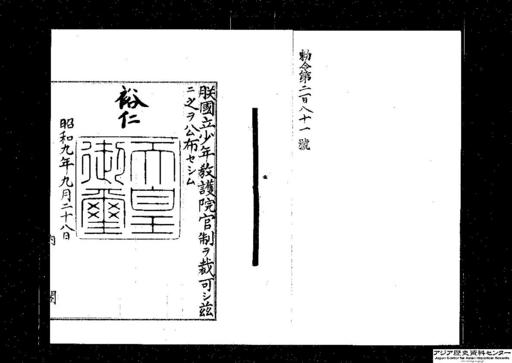 勅令第二百八十一號
朕國立少年教護院官制ヲ裁可シ茲
ニ之ヲ公布セシム
裕仁
天皇
御璽
昭和九年九月二十八日
内閣
アジア歴史資料センター
Japan Center for Asian Historical Records